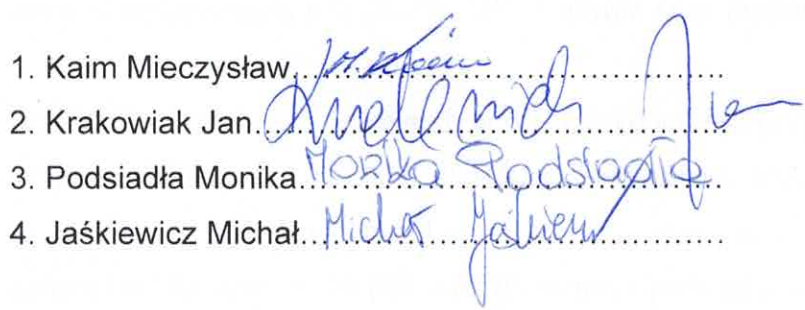 1. Kaim Mieczysław.....M. Kaim..............................
2. Krakowiak Jan.....................................................
3. Podsiadła Monika...Monika Podsiadła..
4. Jaśkiewicz Michał...Michał Jaśkiewicz...............